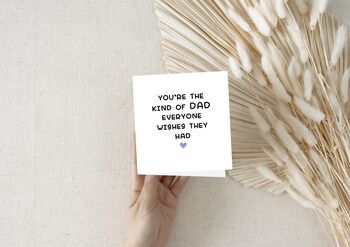 YOU'RE THE
KIND OF DAD
EVERYONE
WISHES THEY
HAD